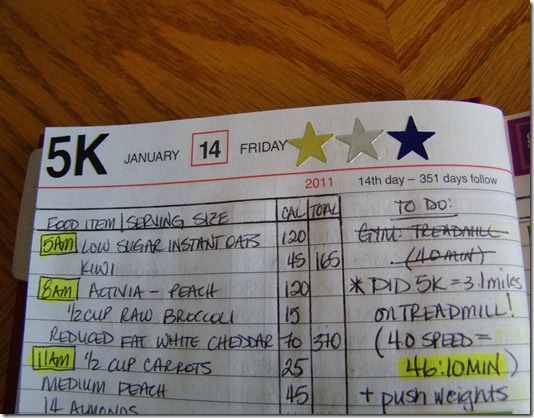 5K JANUARY 14 FRIDAY
2011 14th day – 351 days follow
FOOD ITEM | SERVING SIZE CAL TOTAL
5AM LOW SUGAR INSTANT OATS 120
KIWI 45 165
8AM ACTIVIA - PEACH 120
1/2 CUP RAW BROCCOLI 15
REDUCED FAT WHITE CHEDDAR 70 370
11AM 1/2 CUP CARROTS 25
MEDIUM PEACH 45
14 ALMONDS
TO DO:
GYM: TREADMILL
(40 MIN)
* DID 5K = 3.1 miles
on TREADMILL!
(40 SPEED =
46:10MIN)
+ push weights